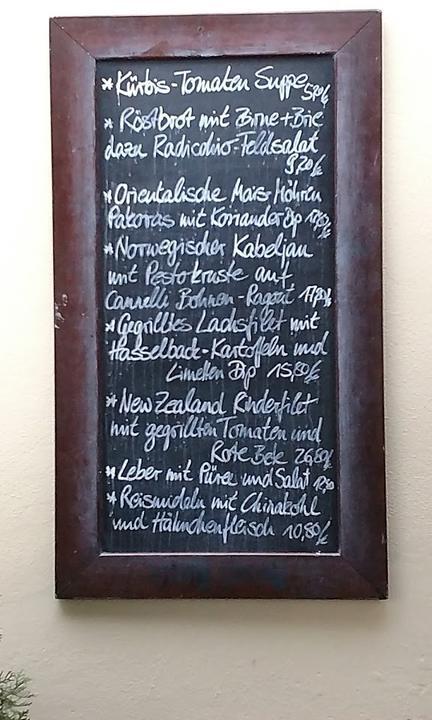 * Kürbis-Tomaten Suppe 5,20/€
* Röstbrot mit Birne + Brie
dazu Radicchio-Feldsalat
9,20/€
* Orientalische Mais-Möhren
Pakoras mit Koriander Dip
* Norwegischer Kabeljau
mit Pestokruste auf
Cannelli Bohnen-Ragout 17,80/€
* Gegrilltes Lachsfilet mit
Hasselback-Kartoffeln und
Limetten Dip 15,80/€
* New Zealand Rinderfilet
mit gegrillten Tomaten und
Rote Bete 26,80/€
* Leber mit Püree und Salat
* Reisnudeln mit Chinakohl
und Hähnchenfleisch 10,80/€